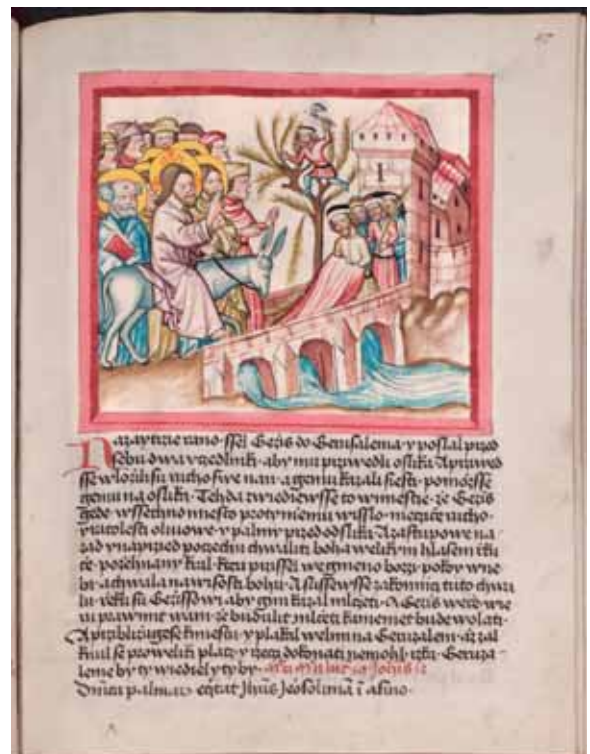 Nazaytrzie rano ssel Gezis do Geruzalema y poslal przed
sebu dwa vczedlniky aby mu przywedli oslika A przywed
sse wlozili su rucho swe nan a gemu kazali siesti pomozsse
gemu na oslika Tehda zwiediewsse to w miestie ze Gezis
gde wssechno miesto proty niemu wysslo mecice rucho
y ratolesti oliwowe y palmy przed oslika A zastupowe na
zad y naprzed poczechu chwaliti boha welikym hlasem rku
ce pozehnany kral ktery przissel we gmeno bozy pokoy w ne
bi a chwala na wysosti bohu A slissewsse zakonnici tuto chwa
lu rekli su Gezissowi aby gim kazal mlczeti A Gezis wece
prawim wam ze budu li mlczeti kamenie budu wolati
A przyblizugese k miestu y plakal welmi na Geruzalem az zal
kniul se prowelik placz y rzeczi dokonati nemohl rzka Geruza
leme by ty wiediel y ty by
Dnica palmarum